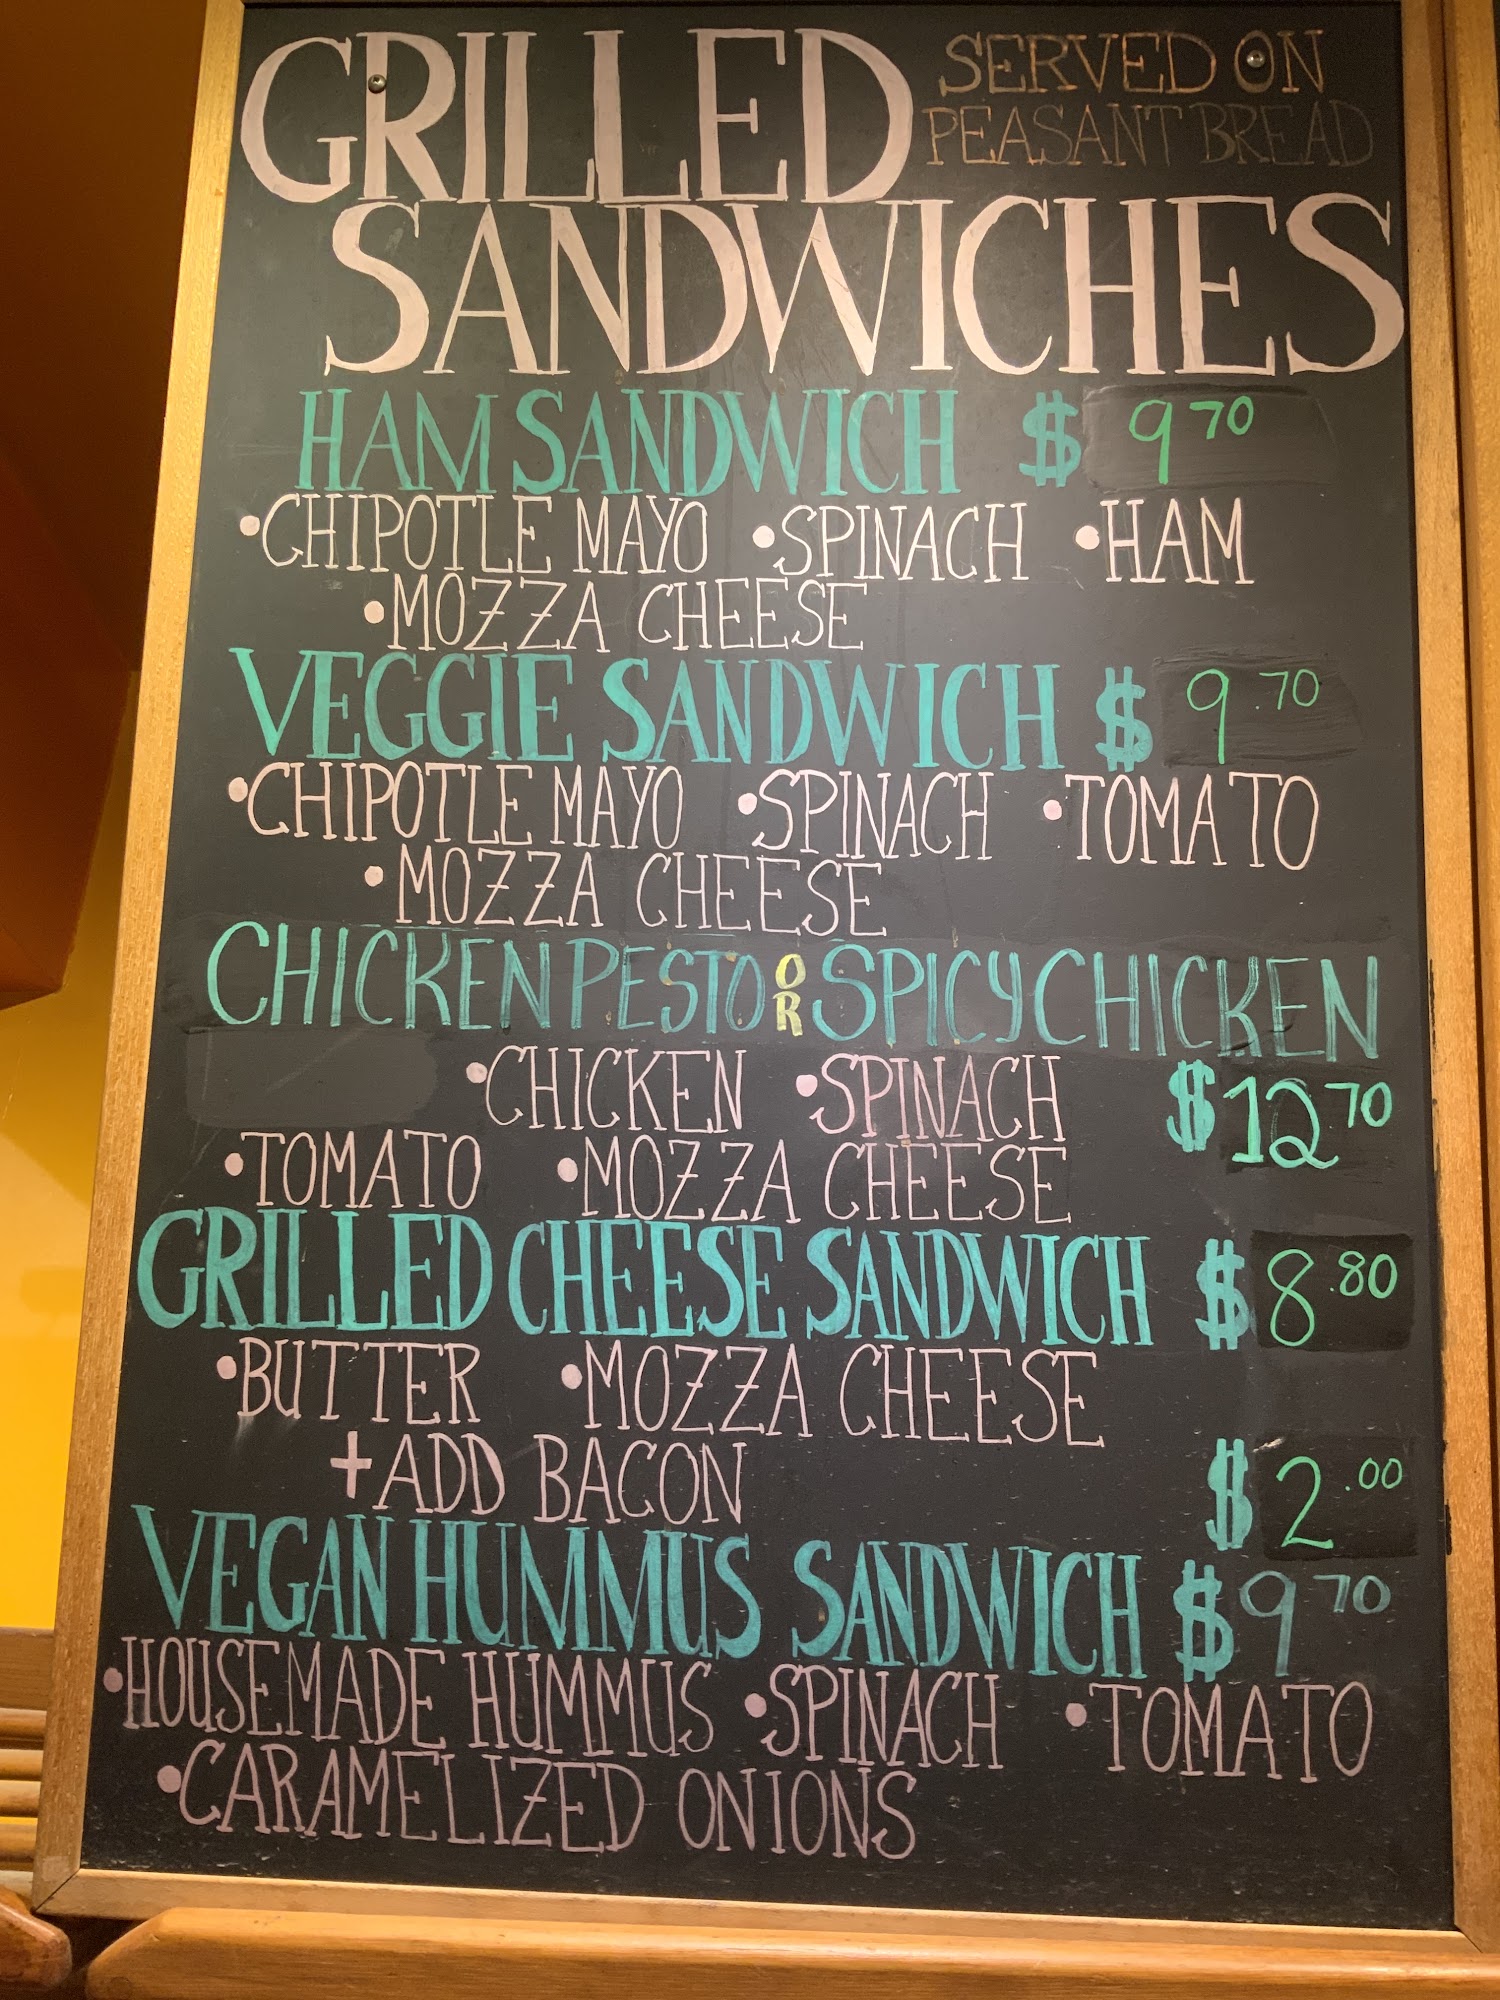 GRILLED SERVED ON
PEASANT BREAD
SANDWICHES
HAM SANDWICH $ 9 70
•CHIPOTLE MAYO •SPINACH •HAM
•MOZZA CHEESE
VEGGIE SANDWICH $ 9.70
•CHIPOTLE MAYO •SPINACH •TOMATO
•MOZZA CHEESE
CHICKEN PESTO OR SPICY CHICKEN
•CHICKEN •SPINACH $12 70
•TOMATO •MOZZA CHEESE
GRILLED CHEESE SANDWICH $8.80
•BUTTER •MOZZA CHEESE
+ADD BACON $2.00
VEGAN HUMMUS SANDWICH $9 70
•HOUSEMADE HUMMUS •SPINACH •TOMATO
•CARAMELIZED ONIONS